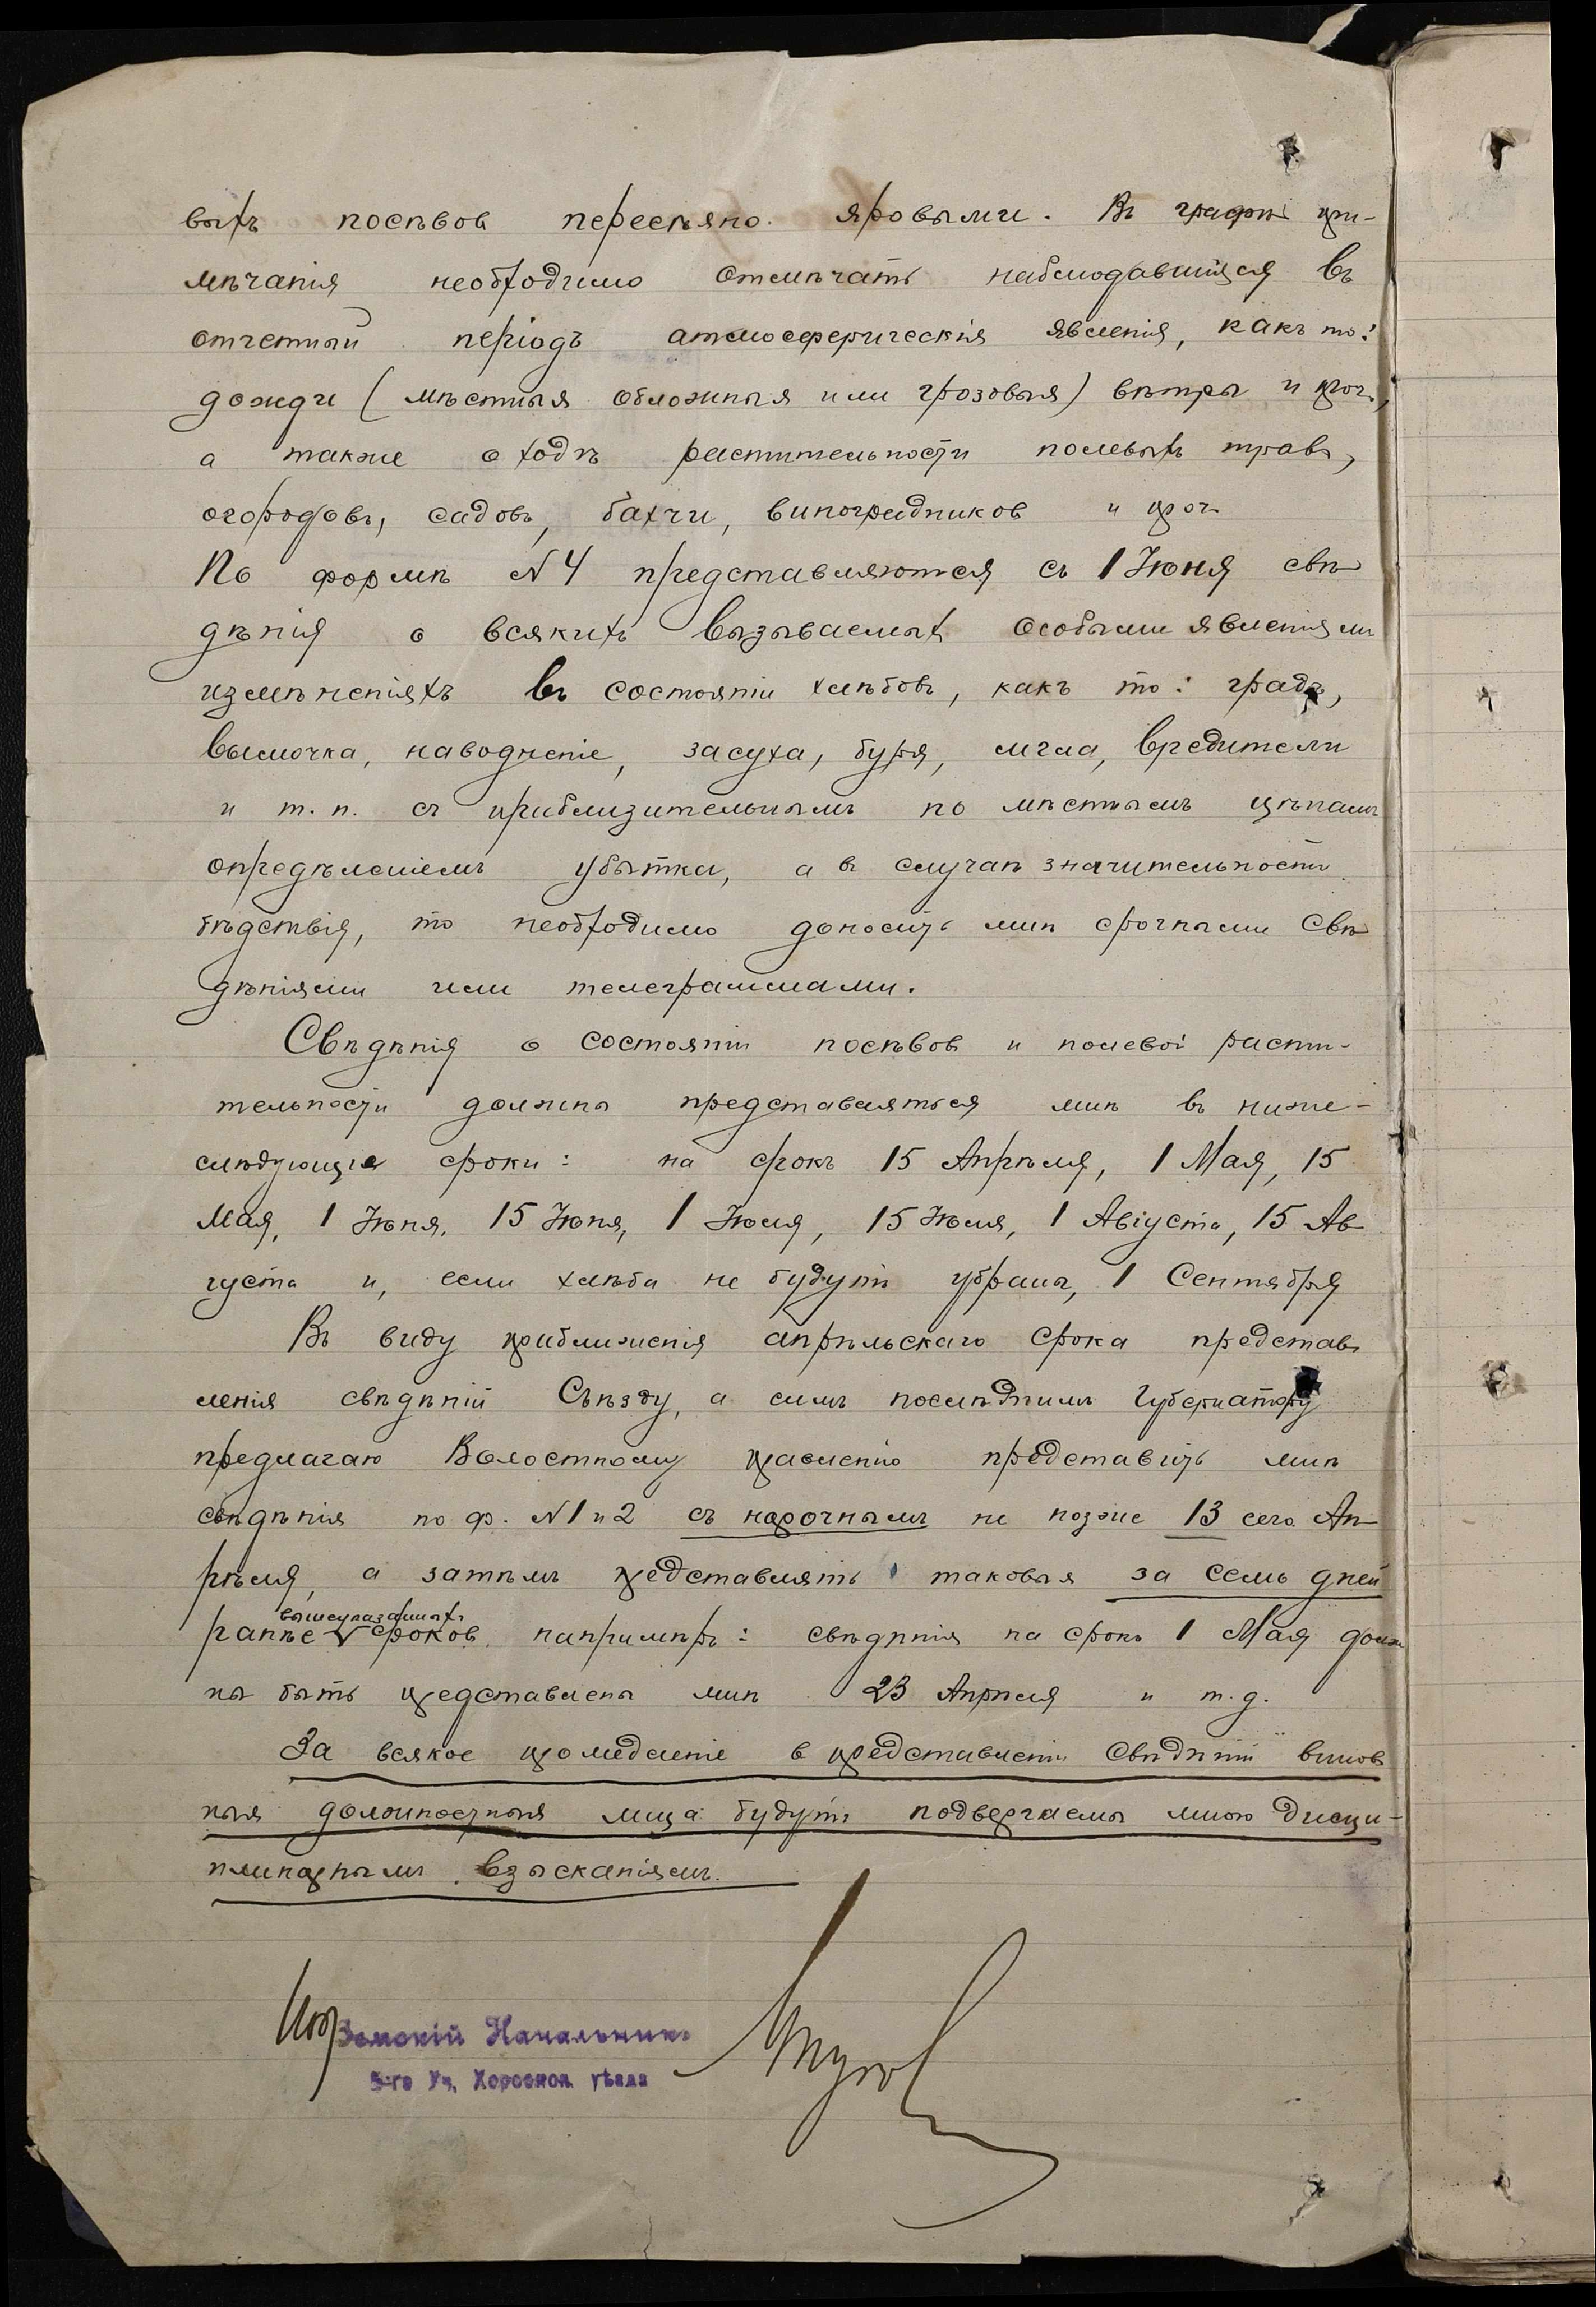 выхъ посѣвов пересѣяно яровыми. Въ графѣ при-
мѣчанія необходимо отмѣчать наблюдавшіяся въ
отчетный періодъ атмосферическія явленія, какъ то:
дожди (мѣстныя обложныя или грозовыя) вѣтры и проч.,
а также о ходѣ растительности полевыхъ травъ,
огородовъ, садовъ, бахчи, виноградников и проч.
По формѣ N 4 представляются съ 1 Іюня свѣ
дѣнія о всякихъ вызываемых особыми явленіями
измѣненіяхъ въ состояніи хлѣбовъ, какъ то: градъ,
вымочка, наводненіе, засуха, буря, мгла, вредители
и т. п. съ приблизительнымъ по мѣстнымъ цѣнамъ
опредѣленіемъ убытка, а въ случаѣ значительности
бѣдствія, то необходимо доносить мнѣ срочными свѣ
дѣніями или телеграммами.
Свѣдѣнія о состояніи посѣвов и полевой расти-
тельности должны представляться мнѣ въ ниже-
слѣдующіе сроки: на срокъ 15 Апрѣля, 1 Мая, 15
Мая, 1 Іюня, 15 Іюня, 1 Іюля, 15 Іюля, 1 Августа, 15 Ав
густа и, если хлѣба не будутъ убраны, 1 Сентября
Въ виду приближенія апрѣльскаго срока представ
ленія свѣдѣній Съѣзду, а симъ послѣднимъ Губернатору
предлагаю Волостному правленію представить мнѣ
свѣдѣнія по ф. N 1 и 2 съ нарочнымъ не позже 13 сего Ап
рѣля, а затѣмъ представлять таковыя за семь дней
вышеуказанныхъ
ранѣе V сроков, напримѣръ: свѣдѣнія на срокъ 1 Мая долж
ны быть представлены мнѣ 23 Апрѣля и т. д.
За всякое промедленіе в представленіи свѣдѣній винов
ныя должностныя лица будутъ подвергаемы мною дисци-
плинарнымъ взысканіямъ.
Земскій Начальникъ
5-го Уч. Херсонск. уѣзда